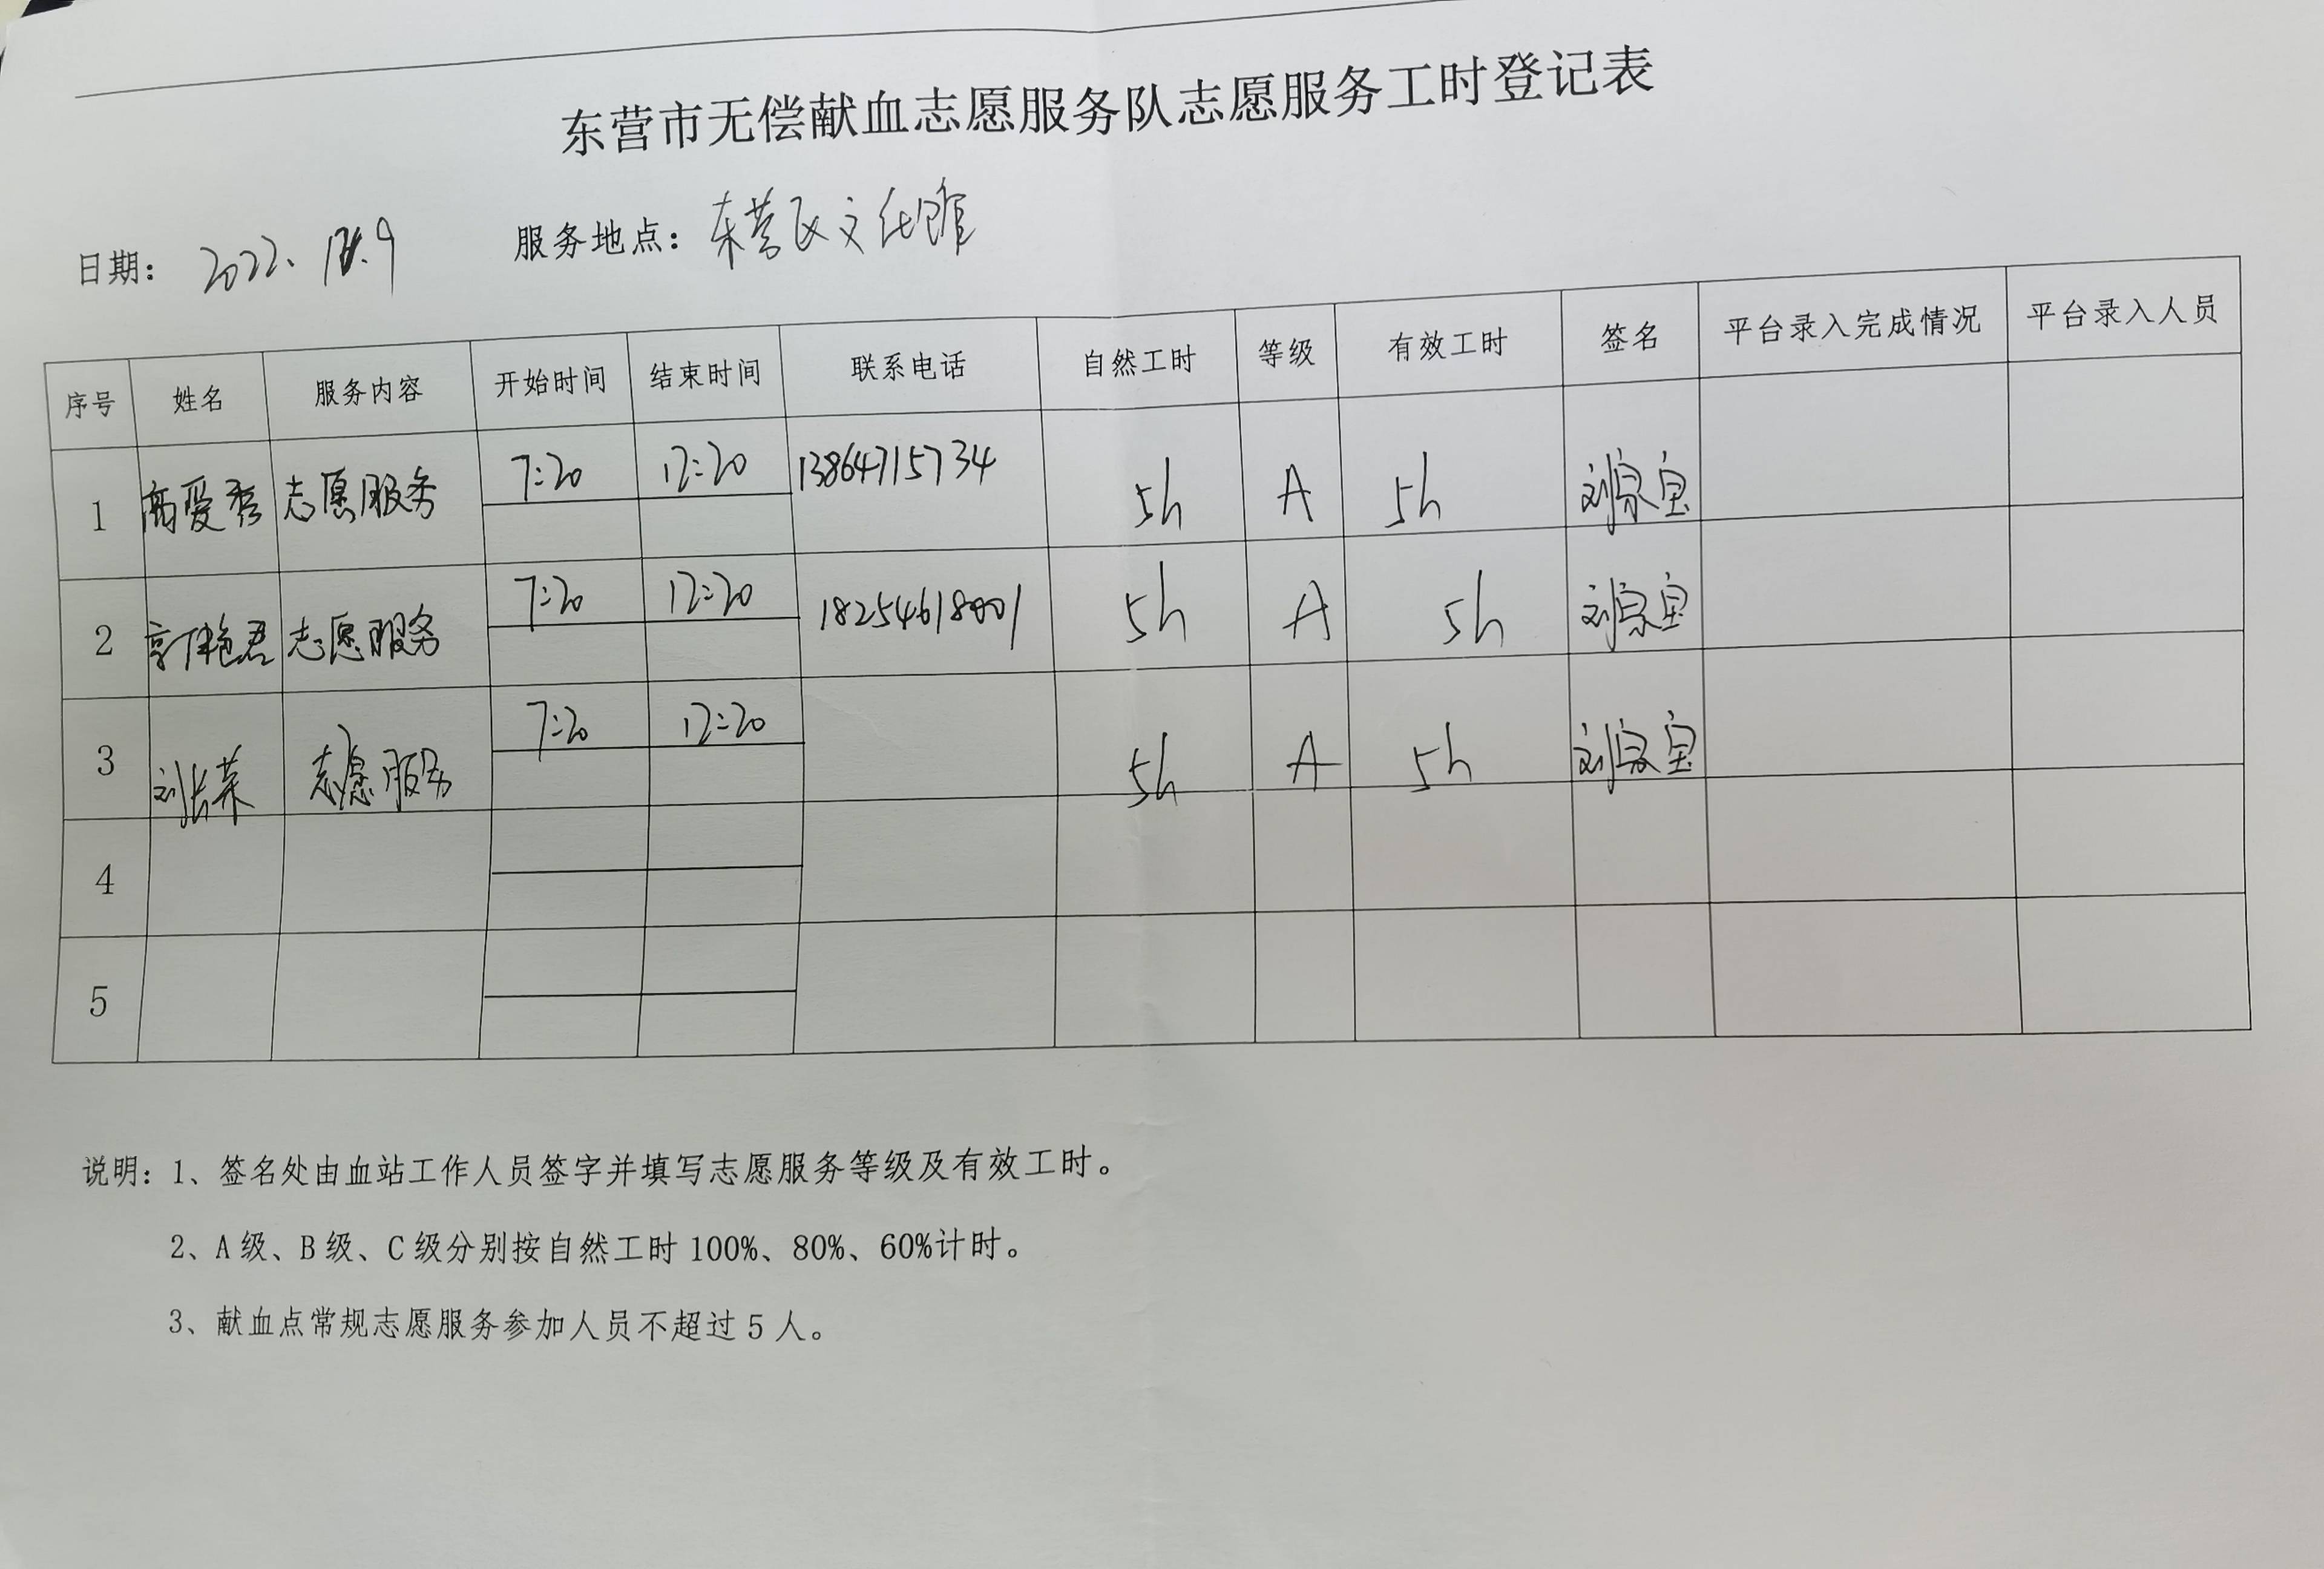 东营市无偿献血志愿服务队志愿服务工时登记表
日期： 2022. 服务地点：东营区文化馆
序号 姓名 服务内容 开始时间 结束时间 联系电话 自然工时 等级 有效工时 签名 平台录入完成情况 平台录入人员
1 高爱秀 志愿服务 7:20 12:20 13864715734 5h A 5h 刘家宝
2 志愿服务 7:20 12:20 5h A 5h 刘家宝
3 刘长荣 志愿服务 7:20 12:20 5h A 5h 刘家宝
4
5
说明：1、签名处由血站工作人员签字并填写志愿服务等级及有效工时。
2、A级、B级、C级分别按自然工时100%、80%、60%计时。
3、献血点常规志愿服务参加人员不超过5人。